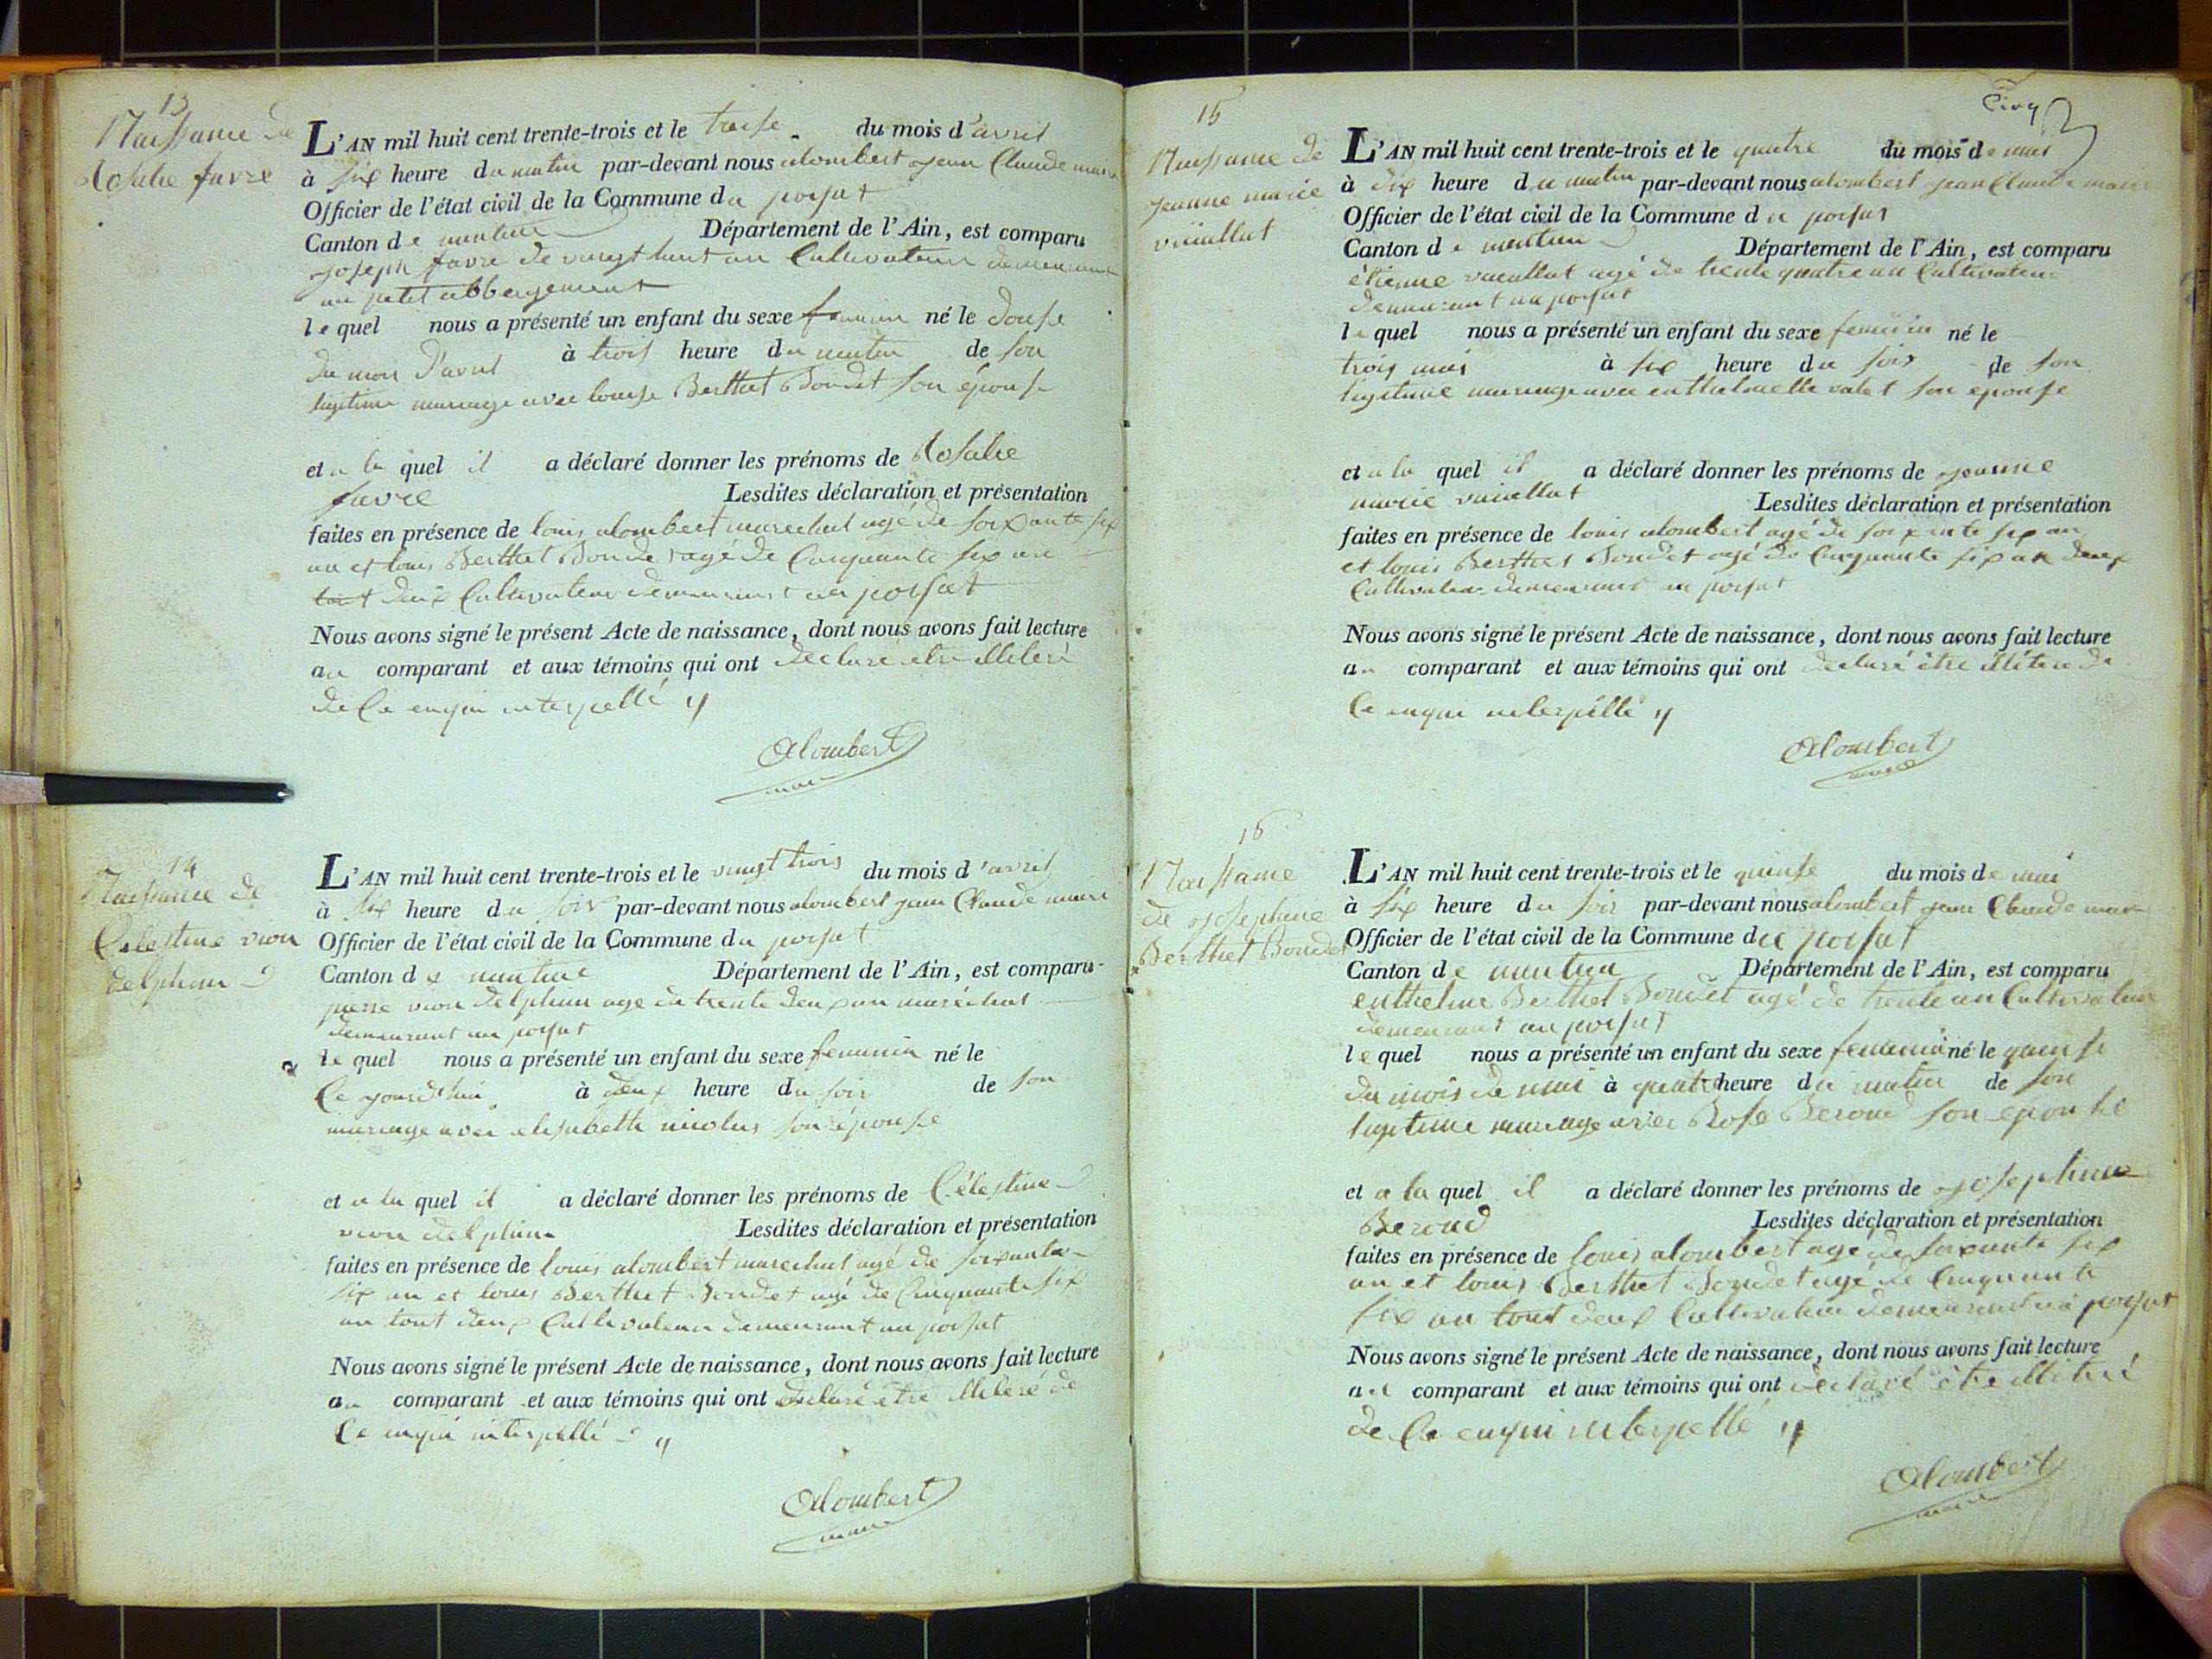 13
Naissance de
Rosalie favre
L'AN mil huit cent trente-trois et le treise du mois d'avril
à six heure du matin par-devant nous alombert jean Claude maire
Officier de l'état civil de la Commune du poisat
Canton de nantua Département de l'Ain, est comparu
joseph favre de vingt huit an Cultivateur demeurant
au petit abbergement
le quel nous a présenté un enfant du sexe feminin né le douse
du mois d'avril à trois heure du matin de son
legitime mariage avec louise Berthet Bondet son épouse
et a la quel il a déclaré donner les prénoms de Rosalie
favre Lesdites déclaration et présentation
faites en présence de louis alombert marechal agé de soixante six
an et louis Berthet Bondet agé de Cinquante six an
tout deux Cultivateur demeurant au poisat
Nous avons signé le présent Acte de naissance, dont nous avons fait lecture
au comparant et aux témoins qui ont declaré etre illiteré
de Ce enqui interpellé
Alombert
maire
14
Naissance de
Celestine vion
delphin
L'AN mil huit cent trente-trois et le vingt trois du mois d'avril
à six heure du soir par-devant nous alombert jean Claude maire
Officier de l'état civil de la Commune du poisat
Canton de nantua Département de l'Ain, est comparu
pierre vion delphin age de trente deux an maréchal
demeurant au poisat
le quel nous a présenté un enfant du sexe feminin né le
Ce jourd'hui à deux heure du soir de son
mariage avec elisabeth nicolas son épouse
et a la quel il a déclaré donner les prénoms de Célestine
vion delphin Lesdites déclaration et présentation
faites en présence de louis alombert marechal agé de soixante
six an et louis Berthet Bondet agé de Cinquante six
an tout deux Cultivateur demeurant au poisat
Nous avons signé le présent Acte de naissance, dont nous avons fait lecture
au comparant et aux témoins qui ont declaré etre illiteré de
Ce enqui interpellé
Alombert
maire
Cinq
15
Naissance de
jeanne marie
L'AN mil huit cent trente-trois et le quatre du mois de mai
à six heure du matin par-devant nous alombert jean Claude maire
Officier de l'état civil de la Commune du poisat
Canton de nantua Département de l'Ain, est comparu
étienne agé de trente quatre an Cultivateur
demeurant au poisat
le quel nous a présenté un enfant du sexe feminin né le
trois mai à six heure du soir de son
legitime mariage avec enthelmette son epouse
et a la quel il a déclaré donner les prénoms de jeanne
marie Lesdites déclaration et présentation
faites en présence de louis alombert agé de soixante six an
et louis Berthet Bondet agé de Cinquante six an deux
Cultivateur demeurant au poisat
Nous avons signé le présent Acte de naissance, dont nous avons fait lecture
au comparant et aux témoins qui ont declaré être illiteré de
Ce enqui interpéllé
Alombert
maire
16
Naissance
de josephine
Berthet Bondet
L'AN mil huit cent trente-trois et le quinse du mois de mai
à six heure du soir par-devant nous alombert jean Claude maire
Officier de l'état civil de la Commune du poisat
Canton de nantua Département de l'Ain, est comparu
enthelme Berthet Bondet agé de trente an Cultivateur
demeurant au poisat
le quel nous a présenté un enfant du sexe feminin né le quinse
du mois de mai à quatre heure du matin de son
legitime mariage avec Rose Beroud son epouse
et a la quel il a déclaré donner les prénoms de josephine
Beroud Lesdites déclaration et présentation
faites en présence de louis alombert agé de soixante six
an et louis Berthet Bondet agé de Cinquante
six an tout deux Cultivateur demeurant au poisat
Nous avons signé le présent Acte de naissance, dont nous avons fait lecture
au comparant et aux témoins qui ont declaré être illiteré
de Ce enqui interpellé
Alombert
maire